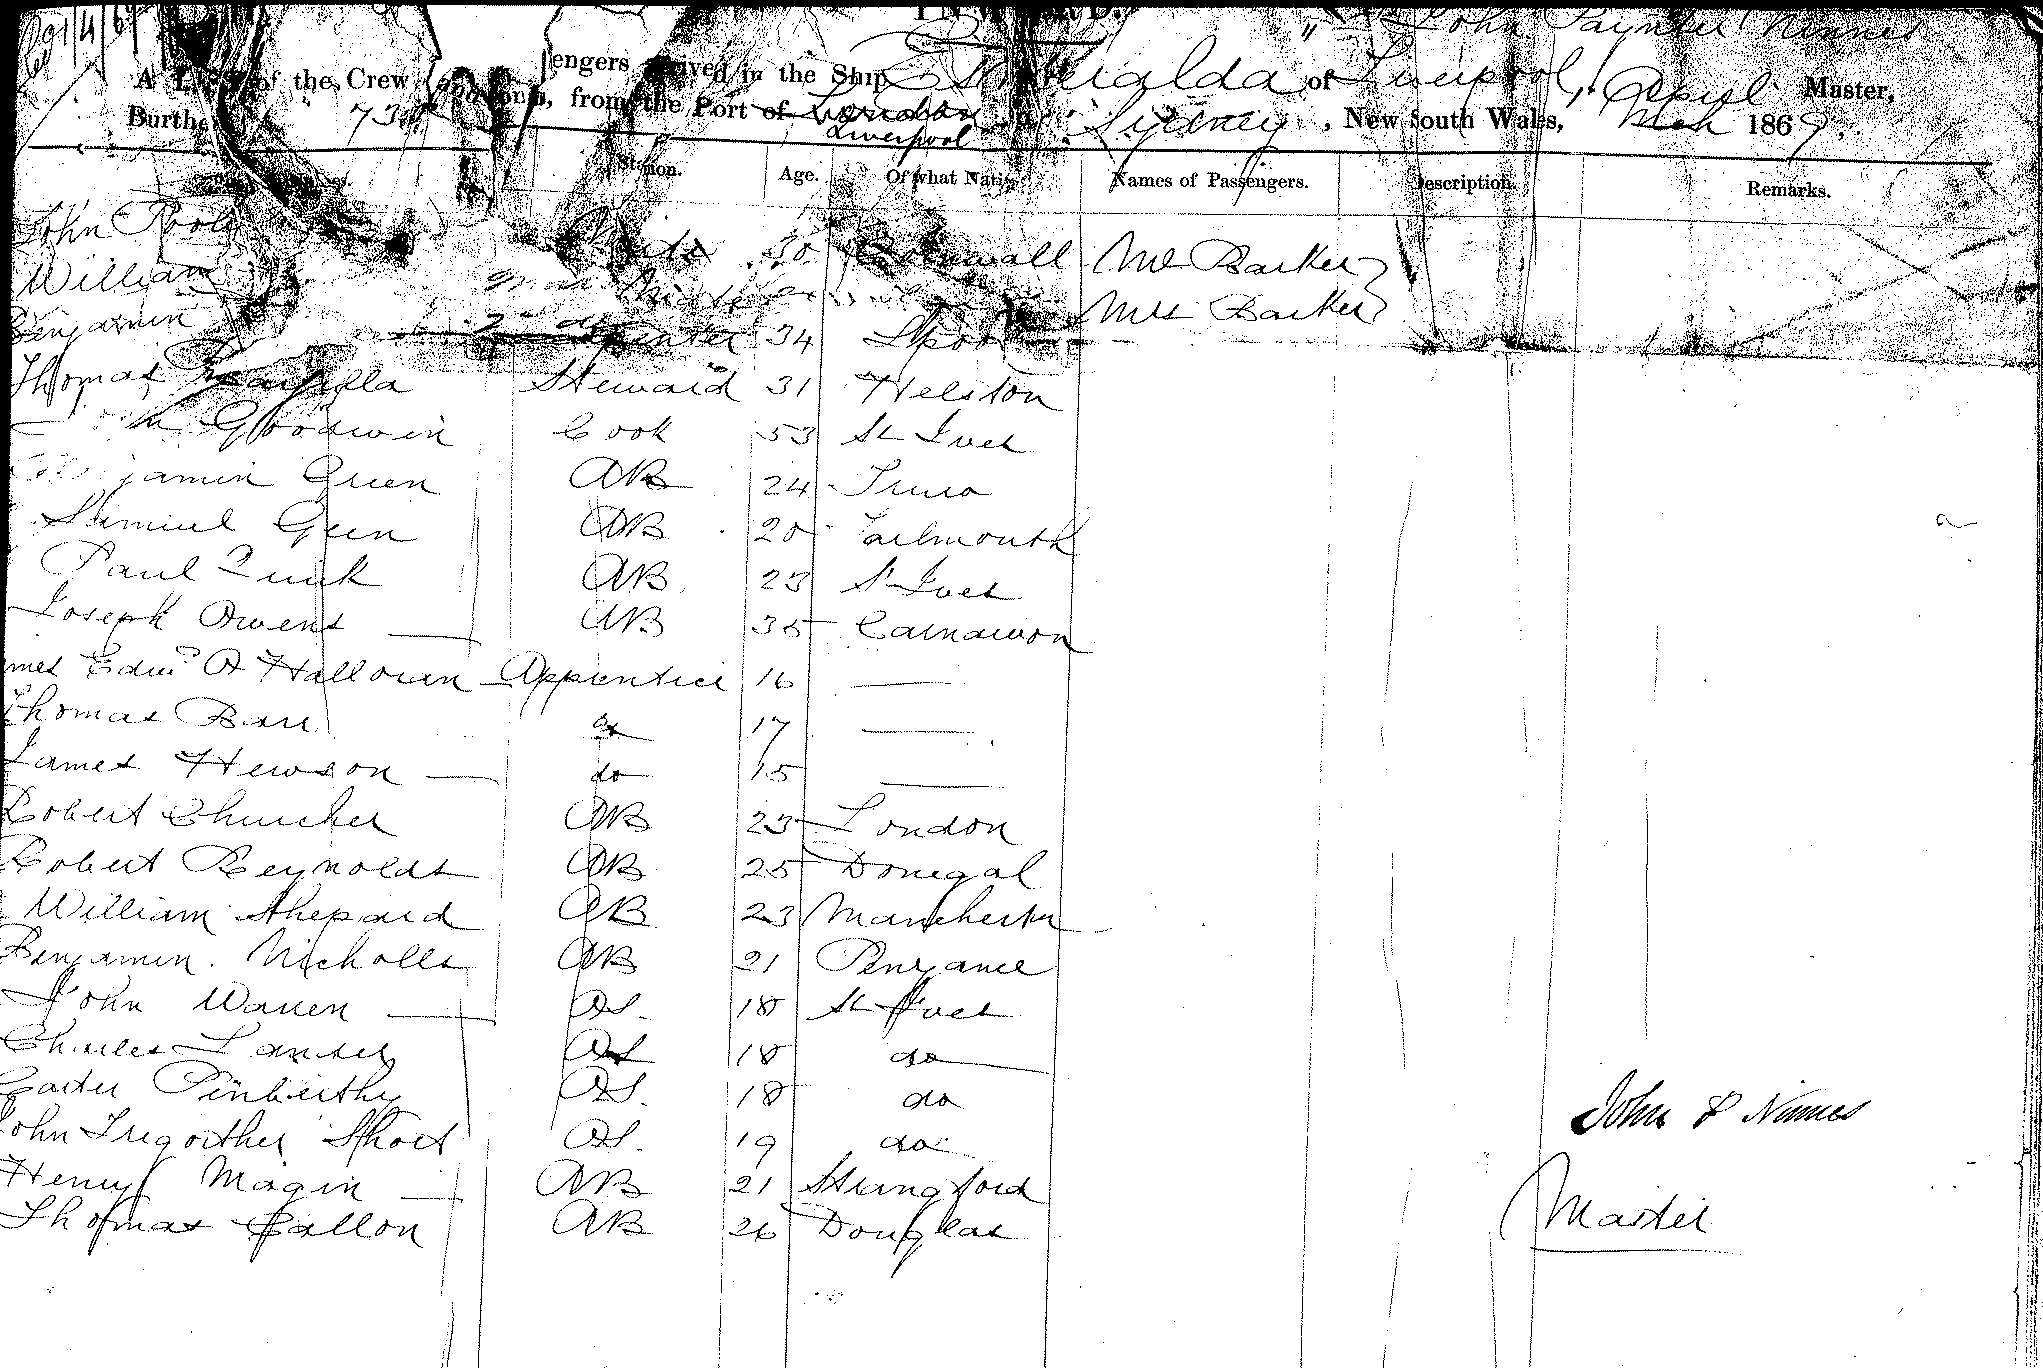 John Paynter Ninnes
A List of the Crew engers arrived in the Ship Esmeralda of Liverpool, Master,
Burthen 73 from the Port of Liverpool Sydney, New South Wales, April 1867
Station. Age. Of what Nation Names of Passengers. Description. Remarks.
John Pooley 30 Cornwall Mr Barker
William Mrs Barker
Benjamin 34
Thomas Steward 31 Helston
Goodwin Cook 53 St Ives
jamin Green AB 24 Truro
Samuel Geen AB 20 Falmouth
Paul Quick AB 23 St Ives
Joseph Owens AB 35 Carnarvon
mes Edwd O Halloran Apprentice 16
Thomas Barr do 17
James Hewson do 15
Robert Churcher AB 23 London
Robert Reynolds AB 25 Donegal
William Shepard AB 23 Manchester
Benjamin. Nicholls AB 21 Penzance
John Warren OS. 18 St Ives
Charles OS 18 do
Carter Pinberthy OS. 18 do
John P Ninnes
John Tregorther Short OS. 19 do
Henry Magin AB 21 Strangford
Master
Thomas Callon AB 26 Douglas